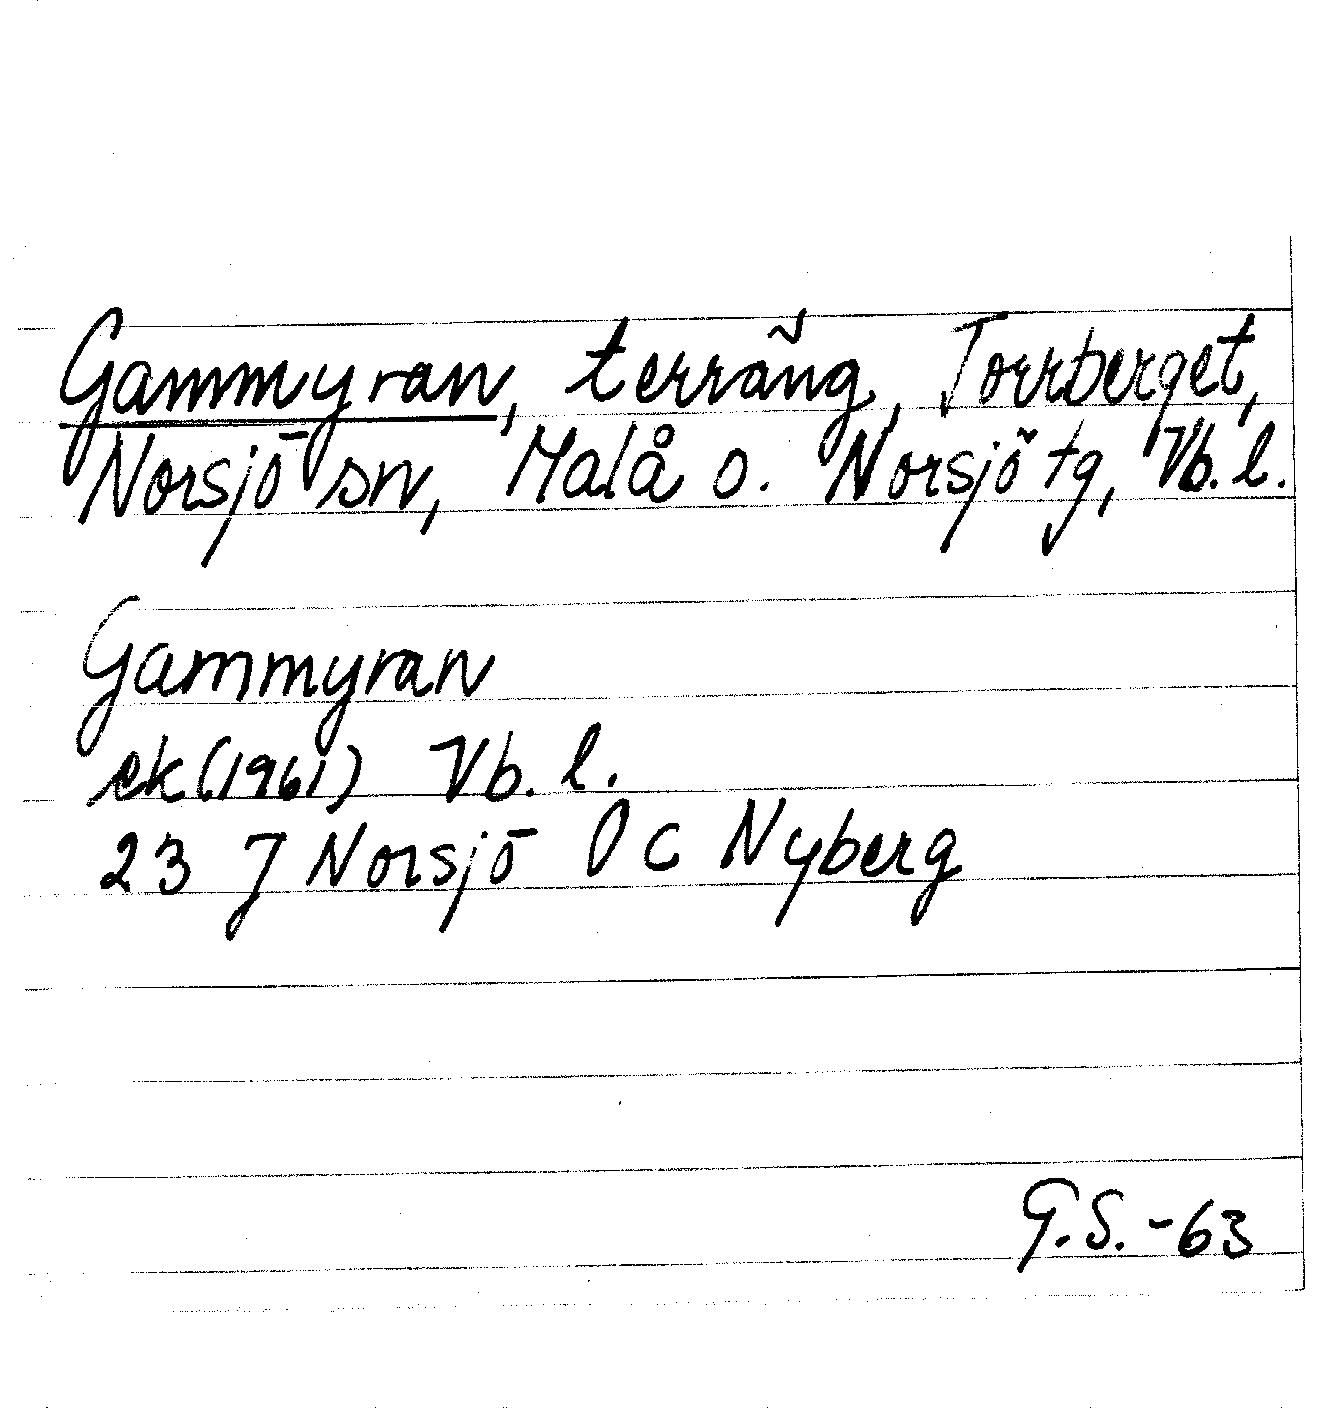 Gammyran, terräng, Torrberget,
Norsjö sn, Malå o. Norsjö tg, Vb. l.
Gammyran
ek (1961) Vb. l.
23 J Norsjö 0 c Nyberg
G.S. -63